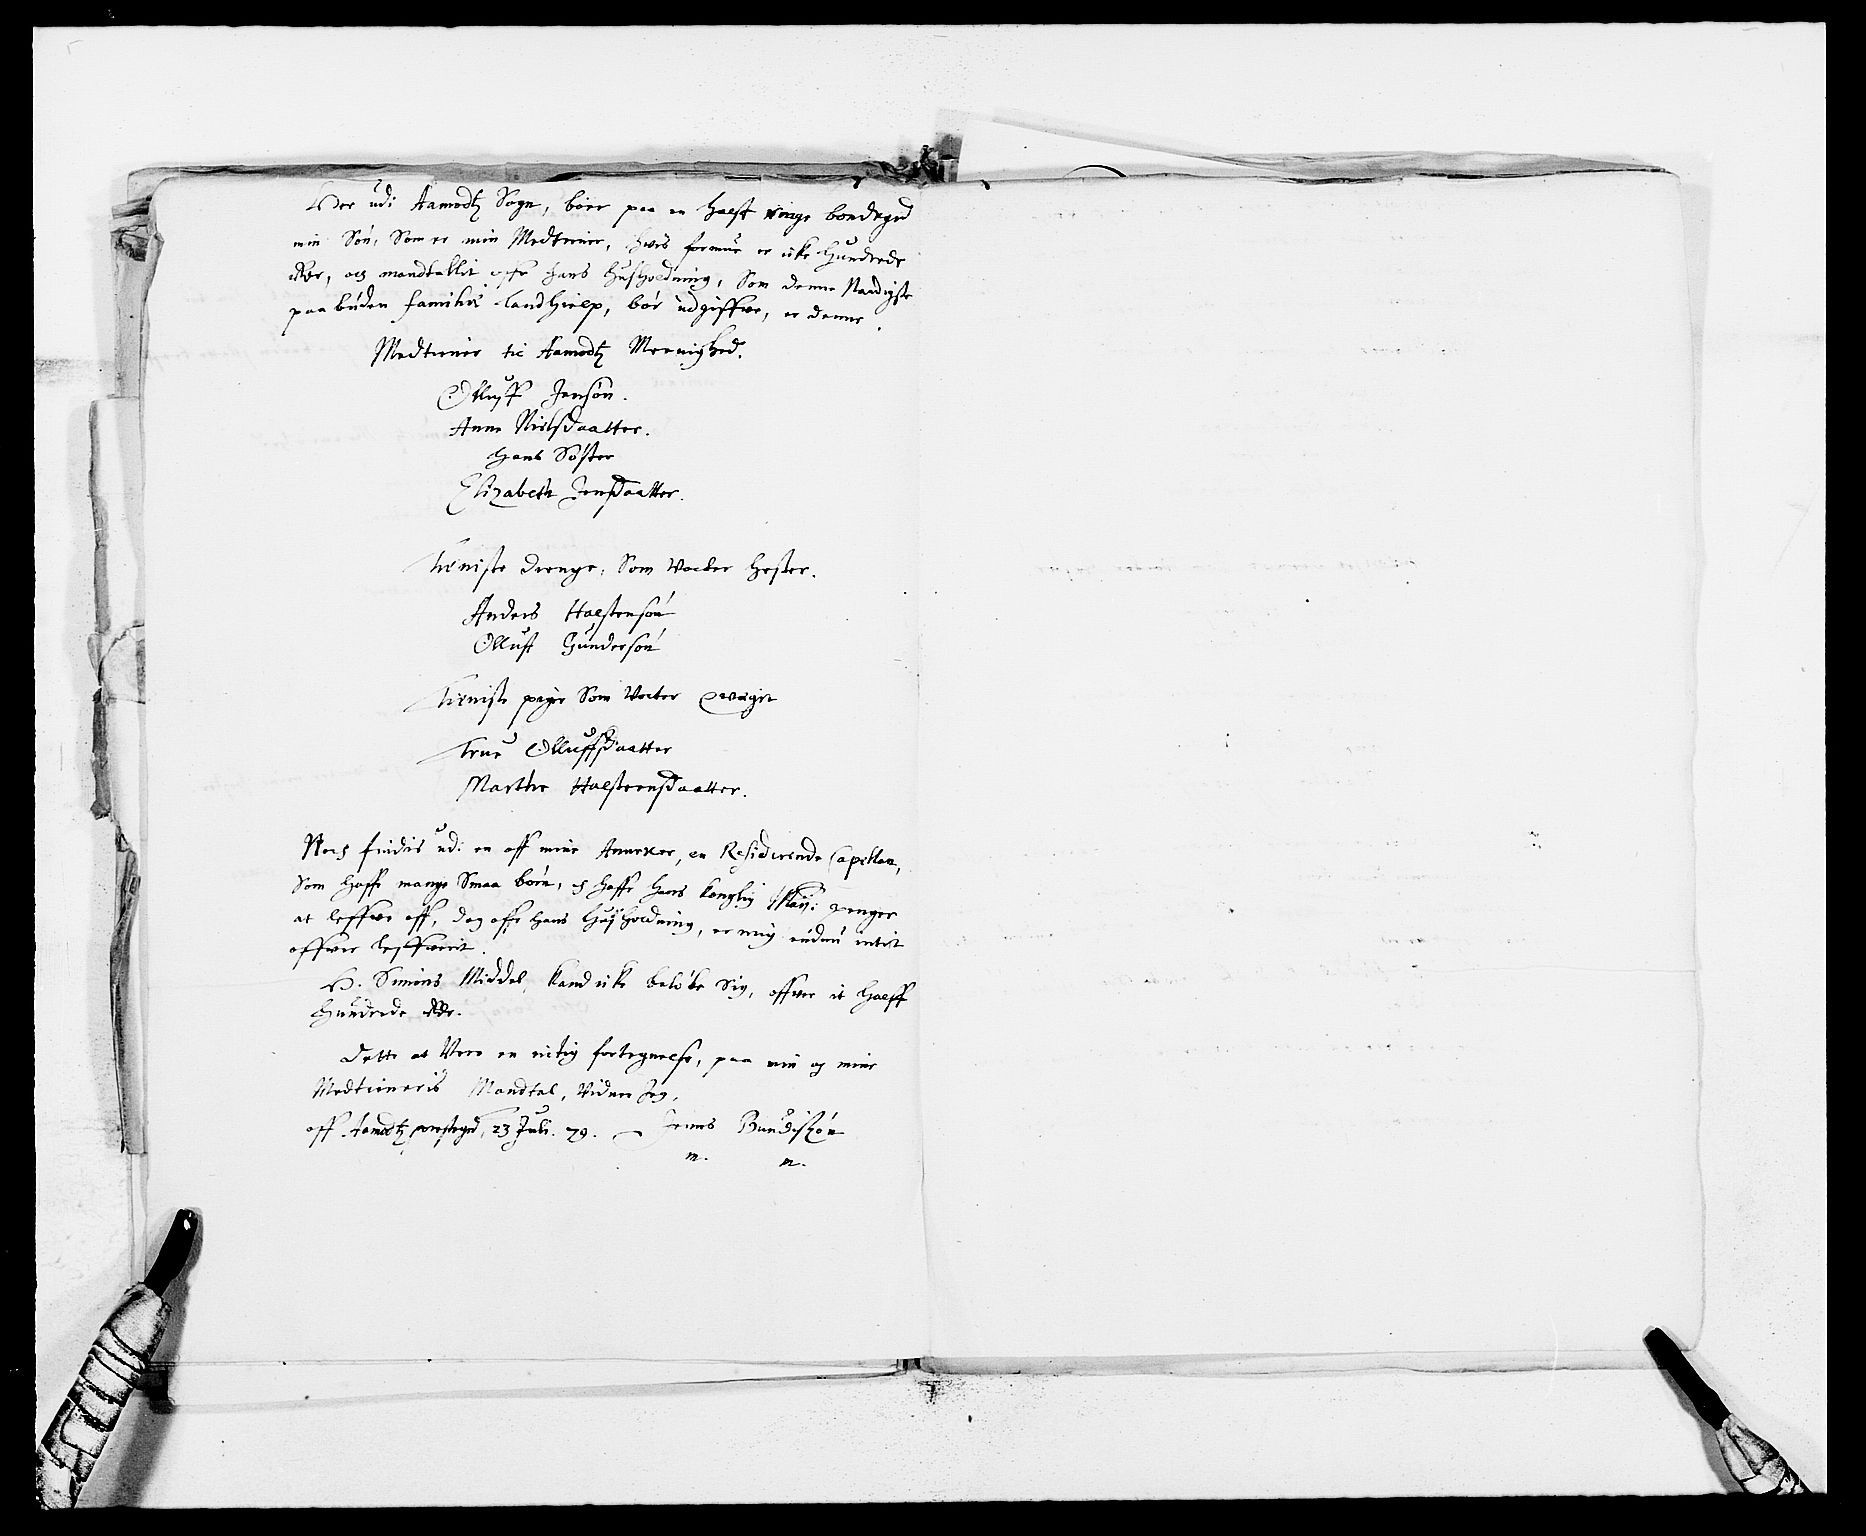 Her udi Aamodtz Sogn, böer paa en halft ringe bondegrd
min Sön, Som er min Medtiener, hvis formue er icke Hundrede
Rdr, och mandtallit offr hans Husholdning, Som denne Naadigste
paabuden familiæ-Landhielp, bör udgiffve, er denne.
Medtiener til Aamodtz Meenighed.
Olluff Jensön.
Anne Nielsdaatter.
Hans Söster
Elizabeth Jensdaatter.
Tieniste Drenge, Som Vocter Hester.
Anders Halstensön
Olluff Gundersön
Tieniste piger Som Vocter Qvæget
True Olluffsdaatter
Marthe Halsteensdaatter.
Noch findis udi en aff mine Annexer, en Residerende Capellan,
Som haffr mange Smaa börn, och haffr hans Konglig Maij: penger
at leffve aff, dog offr hans Husholdning, er mig endnu intet
offver leffverit.
H. Simons Middel, kand icke belöbe Sig, offver it halff
Hundrede Rdr.
Dette at Vere en rictig fortegnelse, paa min og mine
Medtieneris Mandtal, Vidner Jeg,
aff Aamodtz prestegrd, 23 Juli. 79. Jenns Bundisön
m. m.